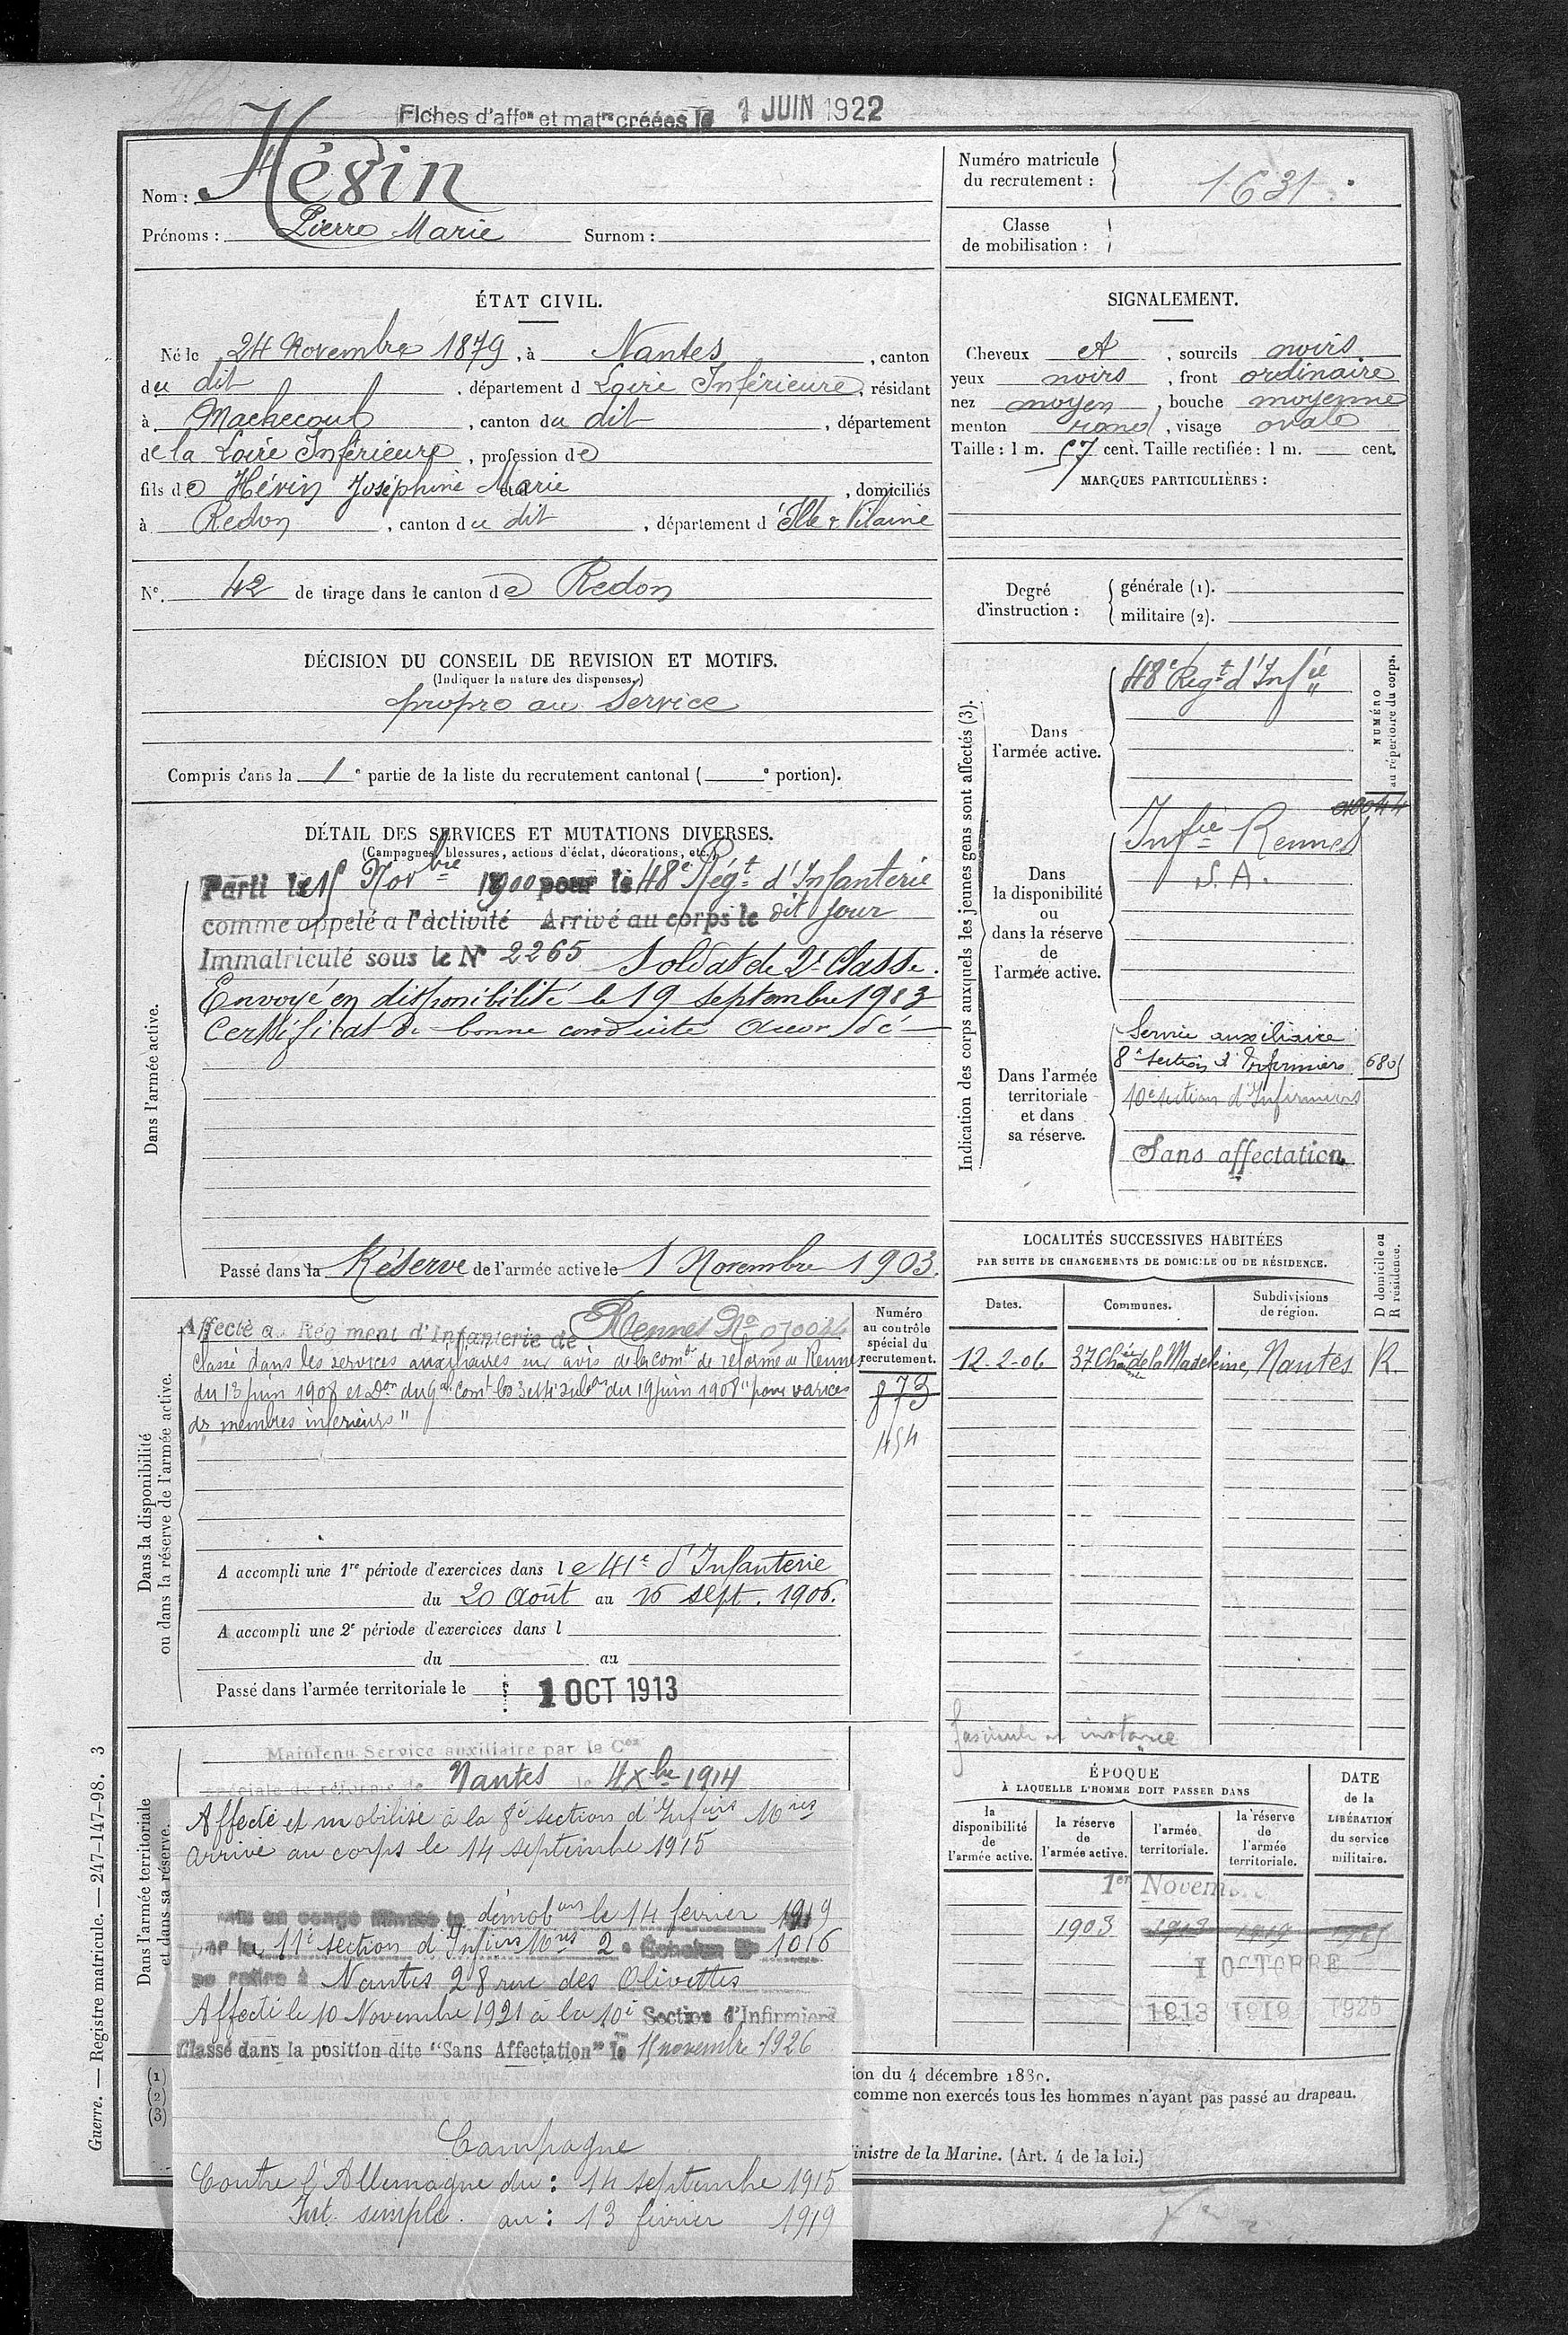 Fiches d'aff^on et mat^res créées le 1 JUIN 1922
Nom : Hévin
Prénoms : Pierre Marie Surnom :
Numéro matricule du recrutement : 1631
Classe de mobilisation :
ÉTAT CIVIL.
Né le 24 Novembre 1879, à Nantes, canton
du dit, département d Loire Inférieure, résidant
à Machecoul, canton du dit, département
de la Loire Inférieure, profession de
fils de Hévin Joséphine Marie, domiciliés
à Redon, canton du dit, département d'Ille & Vilaine
N° 42 de tirage dans le canton de Redon
SIGNALEMENT.
Cheveux et, sourcils noirs
yeux noirs, front ordinaire
nez moyen, bouche moyenne
menton rond, visage ovale
Taille : 1 m. 57 cent. Taille rectifiée : 1 m. cent.
MARQUES PARTICULIÈRES :
Degré d'instruction :
générale (1).
militaire (2).
DÉCISION DU CONSEIL DE REVISION ET MOTIFS.
(Indiquer la nature des dispenses.)
propre au service
Compris dans la 1e partie de la liste du recrutement cantonal ( e portion).
DÉTAIL DES SERVICES ET MUTATIONS DIVERSES.
(Campagnes, blessures, actions d'éclat, décorations, etc.)
Dans l'armée active.
Parti le 15 Nov^bre 1900 pour le 48e Rég^t d'Infanterie
comme appelé a l'activité Arrivé au corps le dit jour
Immatriculé sous le N° 2265 Soldat de 2e Classe.
Envoyé en disponibilité le 19 septembre 1903
Certificat de bonne conduite accordé
Passé dans la Réserve de l'armée active le 1 Novembre 1903.
Indication des corps auxquels les jeunes gens sont affectés (3).
NUMÉRO au répertoire du corps.
Dans l'armée active.
48e Reg^t d'Inf^ie
Dans la disponibilité ou dans la réserve de l'armée active.
Inf^ie Rennes
S.A.
Dans l'armée territoriale et dans sa réserve.
Service auxiliaire
8e section d'Infirmiers 6805
10e section d'Infirmiers
Sans affectation
LOCALITÉS SUCCESSIVES HABITÉES
PAR SUITE DE CHANGEMENTS DE DOMICILE OU DE RÉSIDENCE.
D domicile ou R résidence.
Dates. Communes. Subdivisions de région.
12-2-06 37 Ch^sée de la Madeleine, Nantes R.
Dans la disponibilité ou dans la réserve de l'armée active.
Affecté au Régiment d'Infanterie de Rennes No
Classé dans les services auxiliaires sur avis de la com^on de réforme de Rennes
du 13 juin 1908 et D^on du G^al Com^t les 3e et 4e subd^ons du 19 juin 1908 "pour varices
des membres inférieurs"
Numéro au contrôle spécial du recrutement.
873
454
A accompli une 1re période d'exercices dans le 41e d'Infanterie
du 20 Août au 16 sept. 1906.
A accompli une 2e période d'exercices dans l
du au
Passé dans l'armée territoriale le 1 OCT 1913
Dans l'armée territoriale et dans sa réserve.
Maintenu Service auxiliaire par la C^on
spéciale de réforme de Nantes le 4 X^bre 1914
Affecté et mobilisé à la 8e section d'Inf^iers M^res
arrivé au corps le 14 septembre 1915
Mis en congé illimité de démob^on le 14 février 1919
par la 11e section d'Inf^iers M^res 2e Echelon N° 1016
se retire à Nantes 28 rue des Olivettes
Affecté le 10 Novembre 1921 à la 10e Section d'Infirmiers
Classé dans la position dite "Sans Affectation" le 15 novembre 1926
Campagne
Contre l'Allemagne du : 14 septembre 1915
Int. simple. au : 13 février 1919
fascicule en instance
ÉPOQUE
À LAQUELLE L'HOMME DOIT PASSER DANS
DATE de la LIBÉRATION du service militaire.
la disponibilité de l'armée active.
la réserve de l'armée active.
l'armée territoriale.
la réserve de l'armée territoriale.
1er Novembre
1903 1913 1919 1925
1 OCTOBRE
1913 1919 1925
(1)
(2)
(3)
ion du 4 décembre 1889.
comme non exercés tous les hommes n'ayant pas passé au drapeau.
inistre de la Marine. (Art. 4 de la loi.)
Guerre. — Registre matricule. — 247-147-98. 3